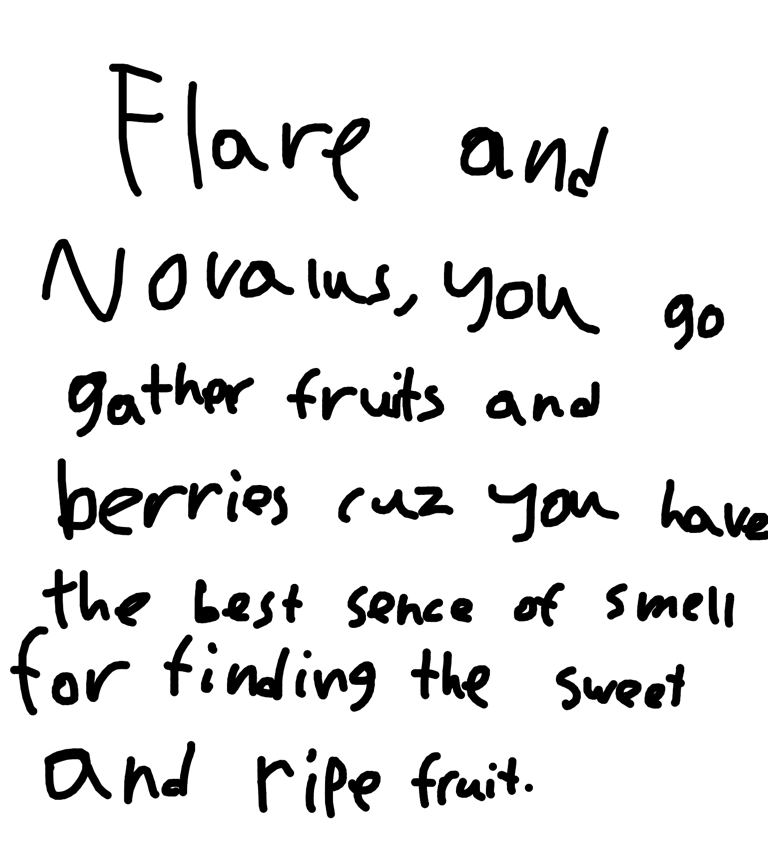 Flare and
Novalus, you go
gather fruits and
berries cuz you have
the best sence of smell
for finding the sweet
and ripe fruit.